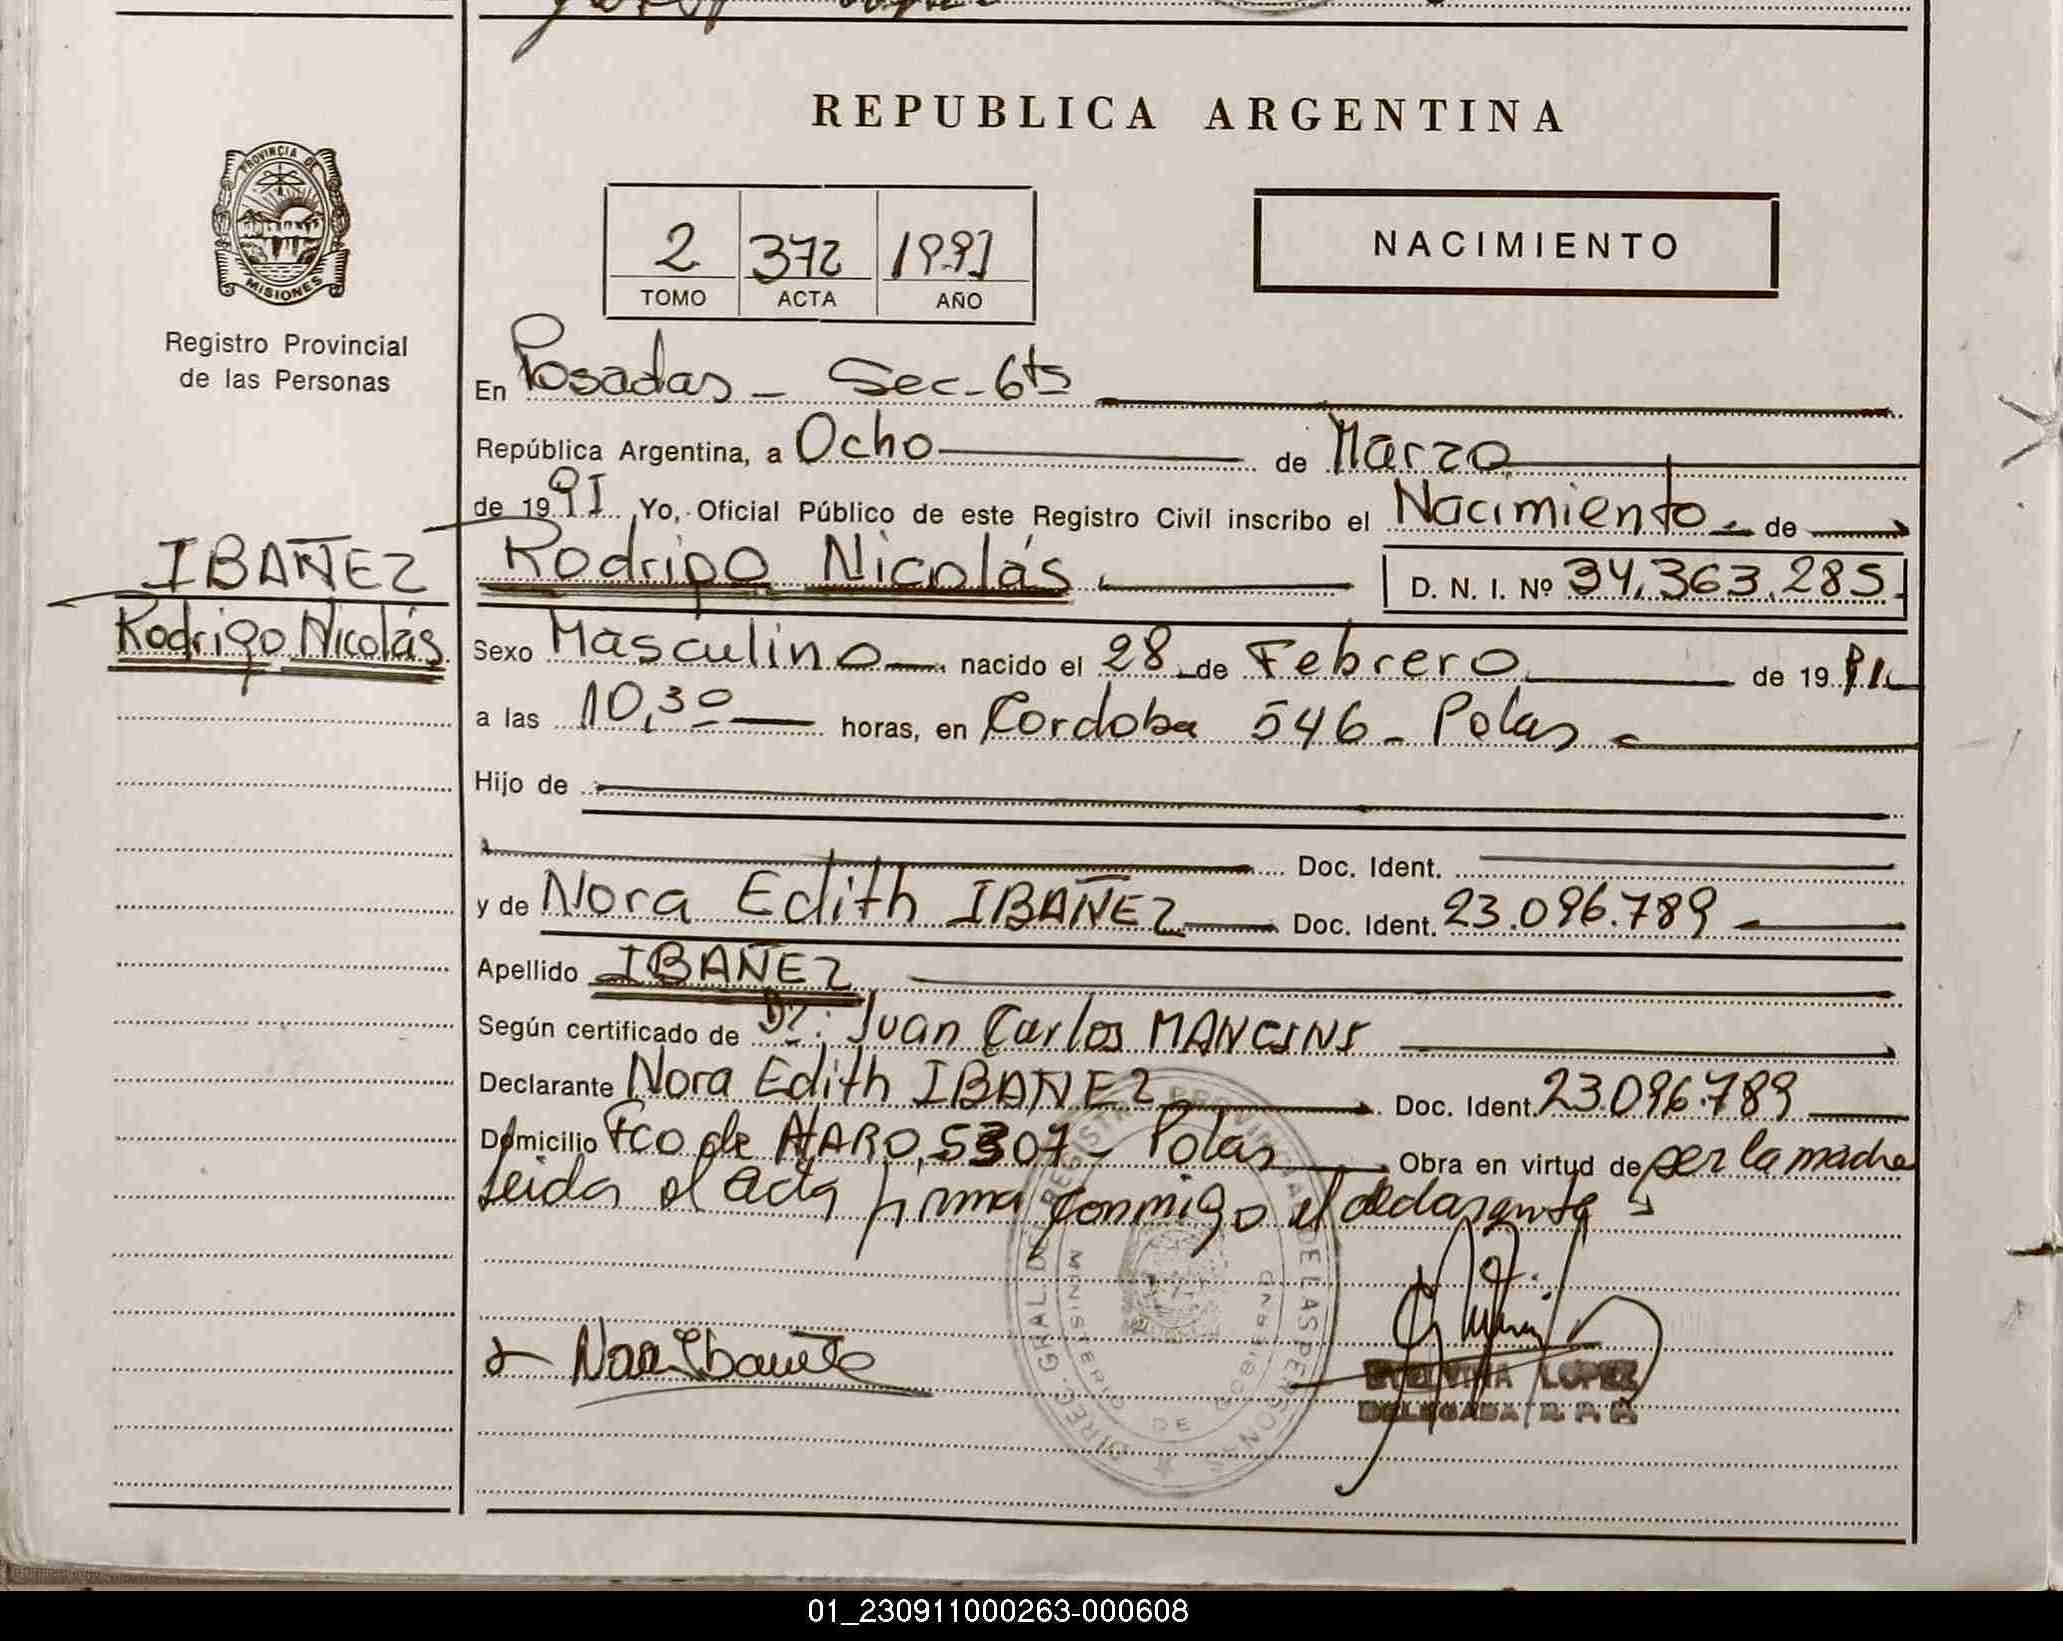 REPUBLICA ARGENTINA
PROVINCIA DE MISIONES
Registro Provincial
de las Personas
2 372 1991
TOMO ACTA AÑO
NACIMIENTO
En Posadas - Sec-6ts
República Argentina, a Ocho de Marzo
de 1991 Yo, Oficial Público de este Registro Civil inscribo el Nacimiento de
IBAÑEZ
Rodrigo Nicolás
Rodrigo Nicolás D. N. I. Nº 34.363.285
Sexo Masculino nacido el 28 de Febrero de 1991
a las 10,30 horas, en Cordoba 546 - Pdas
Hijo de
Doc. Ident.
y de Nora Edith IBAÑEZ Doc. Ident. 23.096.789
Apellido IBAÑEZ
Según certificado de Dr. Juan Carlos MANCINI
Declarante Nora Edith IBAÑEZ Doc. Ident. 23.096.789
Domicilio Fco de HARO 5307 - Pdas Obra en virtud de ser la madre
Leida el acta firma conmigo el declarante
DIREC. GRAL. DE REGISTRO PROVINCIAL DE LAS PERSONAS
MINISTERIO DE GOBIERNO
ETELVINA LOPEZ
DELEGADA R. P. P.
01_230911000263-000608